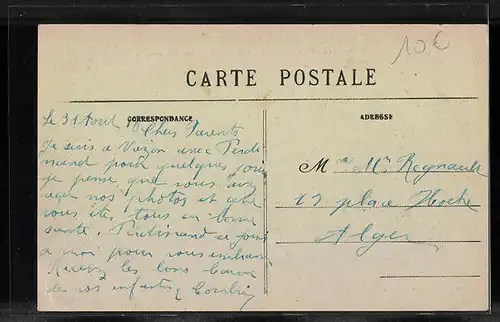 10€
CARTE POSTALE
CORRESPONDANCE
ADRESSE
Le 31 Aout
Chers Parents
Je suis a avec Ferdi
nand pour quelques jours
je pense que vous avez
nos photos et que
vous ête tous en bonne
santé. Ferdinand se joint
a moi pour vous embrasser
Recevez les bons
de vos enfants
M
Mr Regnault
13 place Hoche
Alger